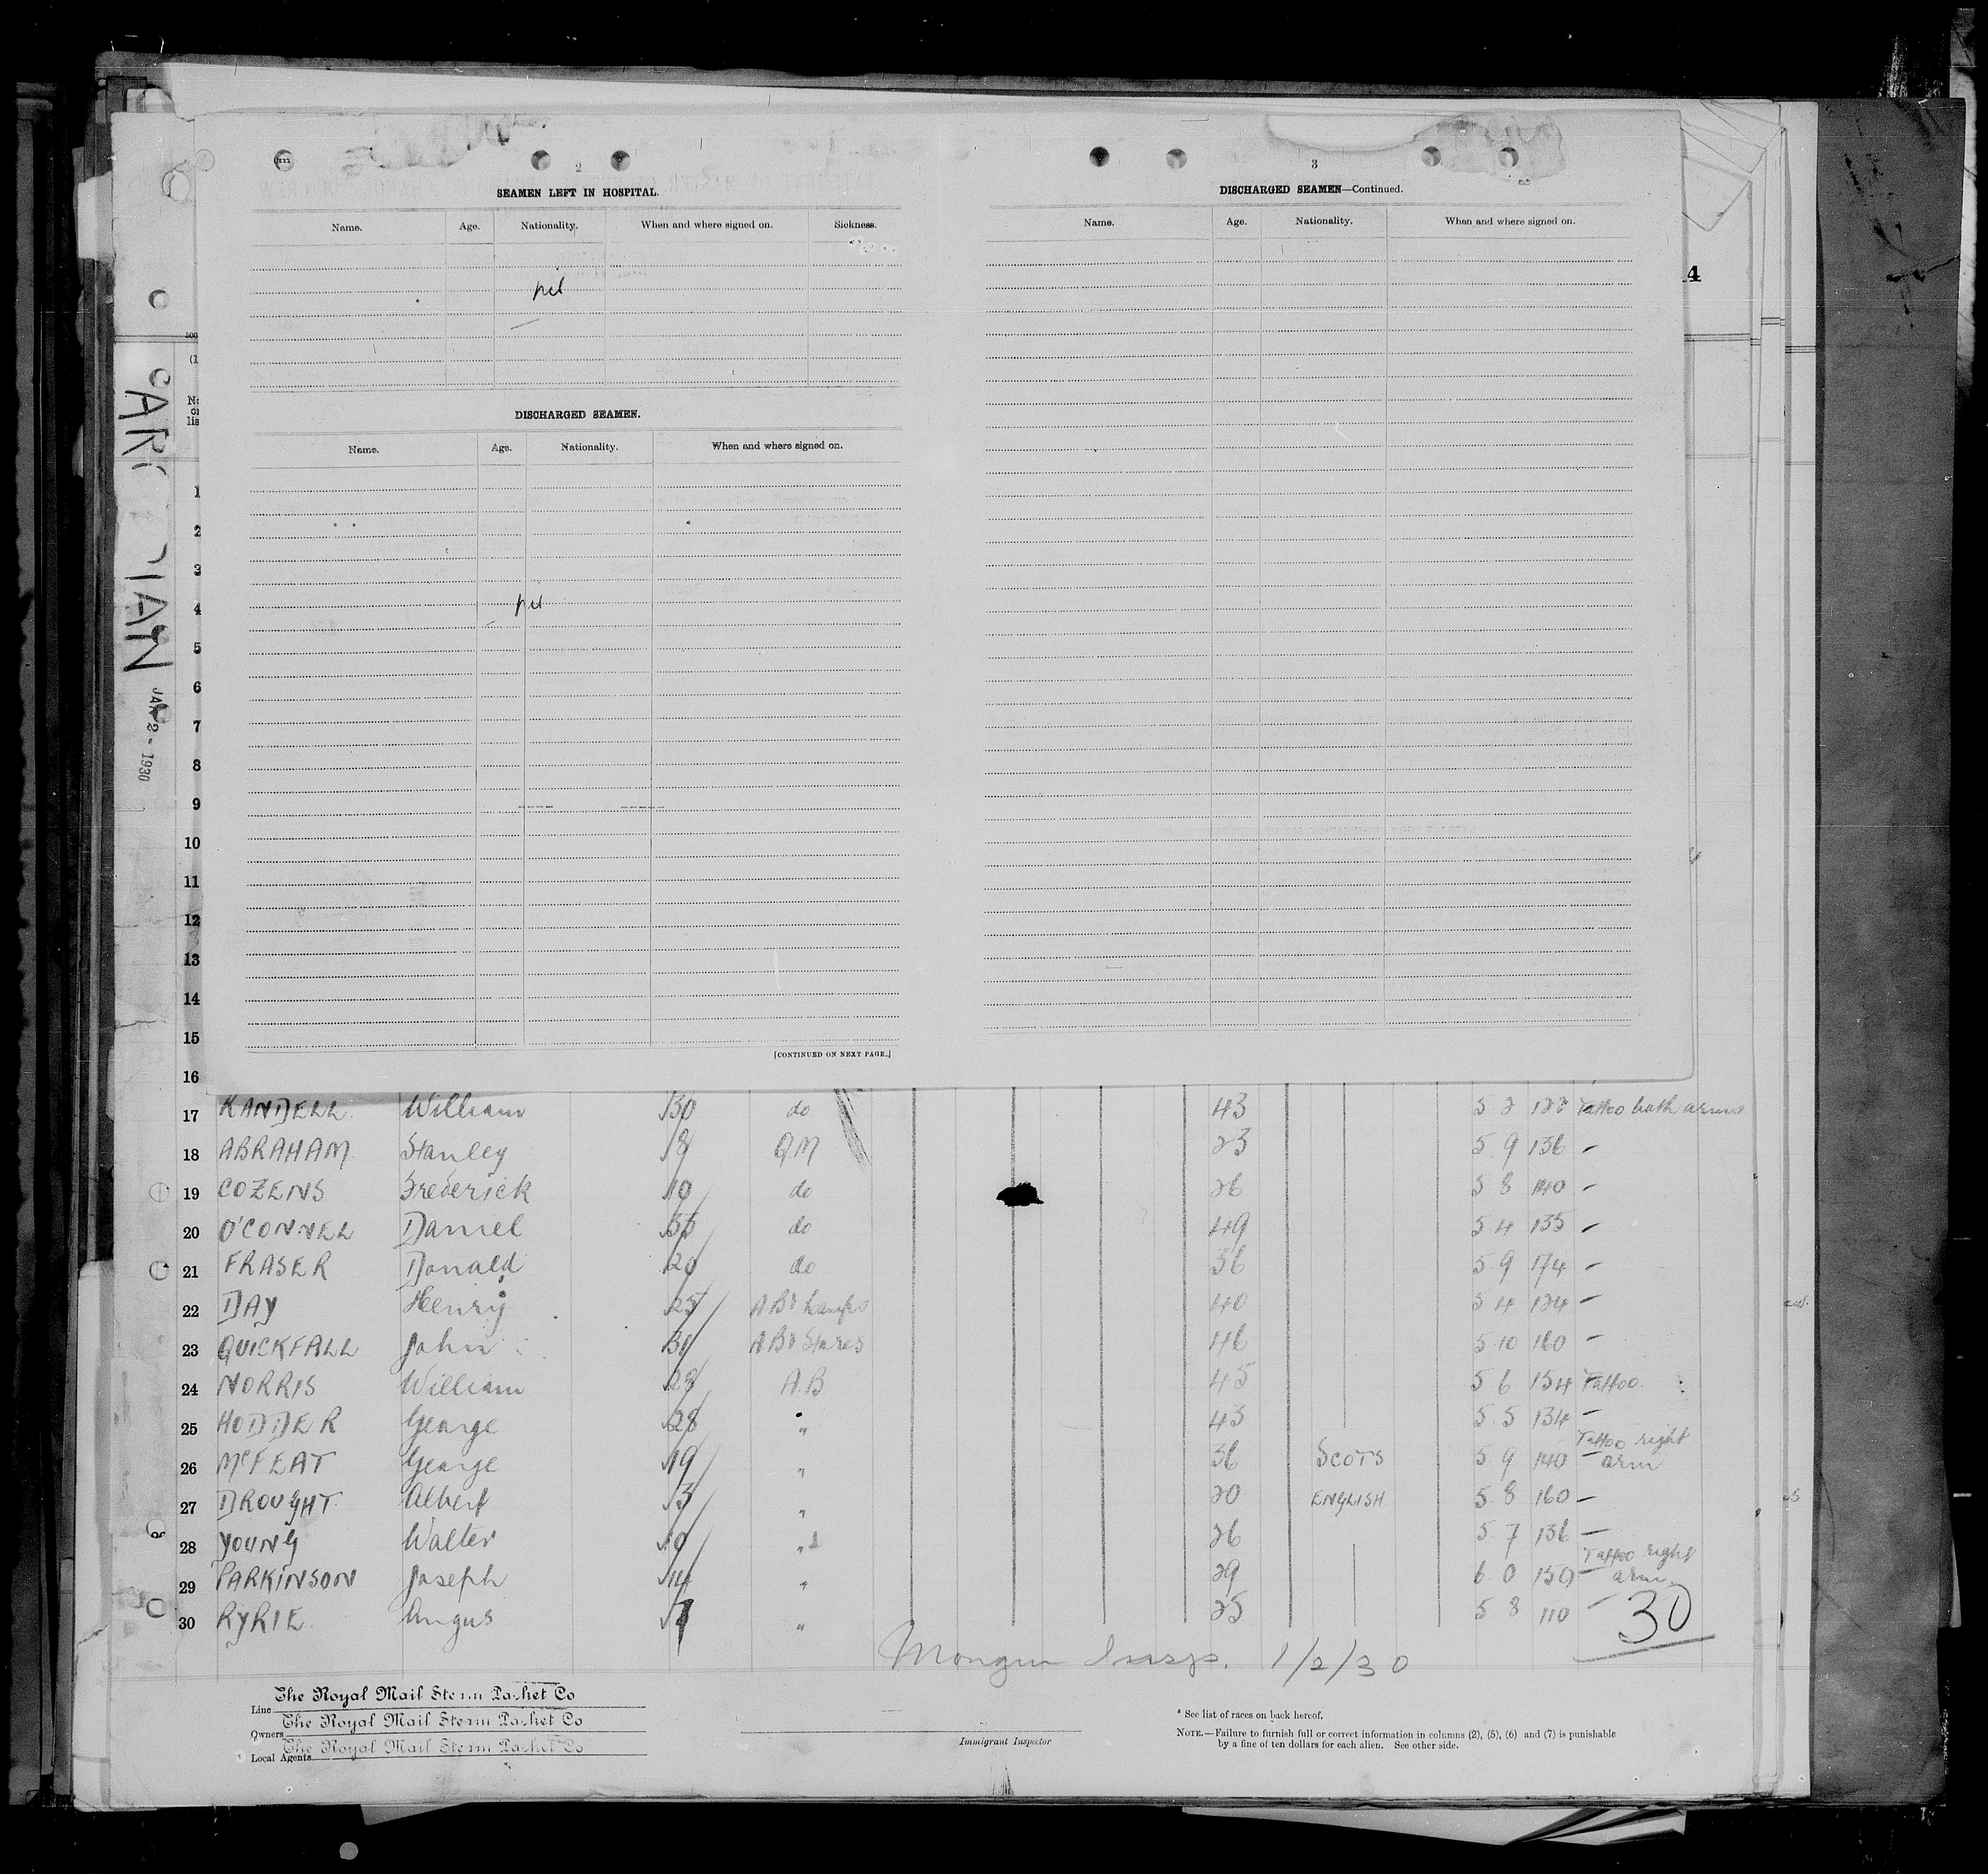 2
SEAMEN LEFT IN HOSPITAL.
Name. Age. Nationality. When and where signed on. Sickness.
nil
DISCHARGED SEAMEN.
Name. Age. Nationality. When and where signed on.
nil
[CONTINUED ON NEXT PAGE.]
3
DISCHARGED SEAMEN—Continued.
Name. Age. Nationality. When and where signed on.
4
JAN 2 - 1930
1
2
3
4
5
6
7
8
9
10
11
12
13
14
15
16
17 William 30 do 43 5 2 Tattoo both arms
18 ABRAHAM Stanley 8 QM 23 5 9 136 -
19 COZENS Frederick 10 do 26 5 8 140 -
20 O'CONNEL Daniel 33 do 49 5 4 135 -
21 FRASER Donald 20 do 36 5 9 174 -
22 DAY Henry 25 AB & Lamps 40 5 4 124 -
23 QUICKFALL John 31 AB & Stores 46 5 10 160 -
24 NORRIS William 28 A.B 45 5 6 154 Tattoo.
25 HODDER George 28 " 43 5 5 134 -
26 McFEAT George 19 " 36 SCOTS 5 9 140 Tattoo right arm
27 DROUGHT Albert 3 " 20 ENGLISH 5 8 160 -
28 YOUNG Walter 10 " 26 5 7 136 -
29 PARKINSON Joseph 14 " 29 6 0 150 Tattoo right arm
30 RYRIE Angus 7 " 25 5 8 110 -
30
Insp. 1/2/30
Line The Royal Mail Steam Packet Co
Owners The Royal Mail Steam Packet Co
Local Agents The Royal Mail Steam Packet Co
Immigrant Inspector
* See list of races on back hereof.
NOTE.—Failure to furnish full or correct information in columns (2), (5), (6) and (7) is punishable
by a fine of ten dollars for each alien. See other side.